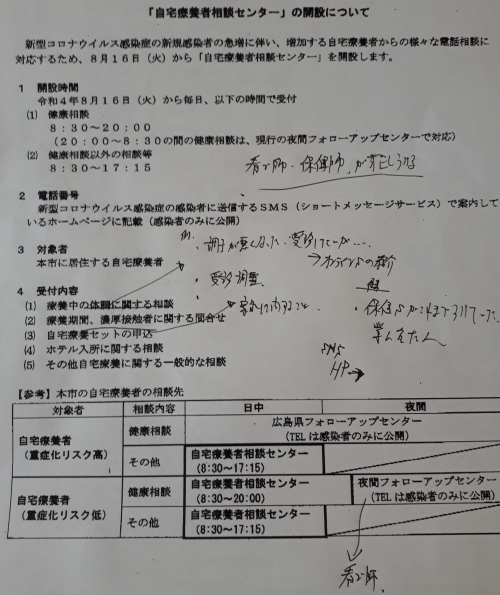 「自宅療養者相談センター」の開設について
新型コロナウイルス感染症の新規感染者の急増に伴い、増加する自宅療養者からの様々な電話相談に
対応するため、8月16日（火）から「自宅療養者相談センター」を開設します。
1 開設時間
令和4年8月16日（火）から毎日、以下の時間で受付
(1) 健康相談
8:30～20:00
（20:00～8:30の間の健康相談は、現行の夜間フォローアップセンターで対応）
(2) 健康相談以外の相談等
8:30～17:15
看護師・保健師
2 電話番号
新型コロナウイルス感染症の感染者に送信するSMS（ショートメッセージサービス）で案内して
いるホームページに記載（感染者のみに公開）
3 対象者
本市に居住する自宅療養者
・調子が悪くなった
・受診調整
4 受付内容
(1) 療養中の体調に関する相談
(2) 療養期間、濃厚接触者に関する問合せ
(3) 自宅療養セットの申込
(4) ホテル入所に関する相談
(5) その他自宅療養に関する一般的な相談
SMS
HP
【参考】本市の自宅療養者の相談先
対象者 相談内容 日中 夜間
自宅療養者（重症化リスク高） 健康相談 広島県フォローアップセンター（TELは感染者のみに公開）
その他 自宅療養者相談センター（8:30～17:15）
自宅療養者（重症化リスク低） 健康相談 自宅療養者相談センター（8:30～20:00） 夜間フォローアップセンター（TELは感染者のみに公開）
その他 自宅療養者相談センター（8:30～17:15）
看護師